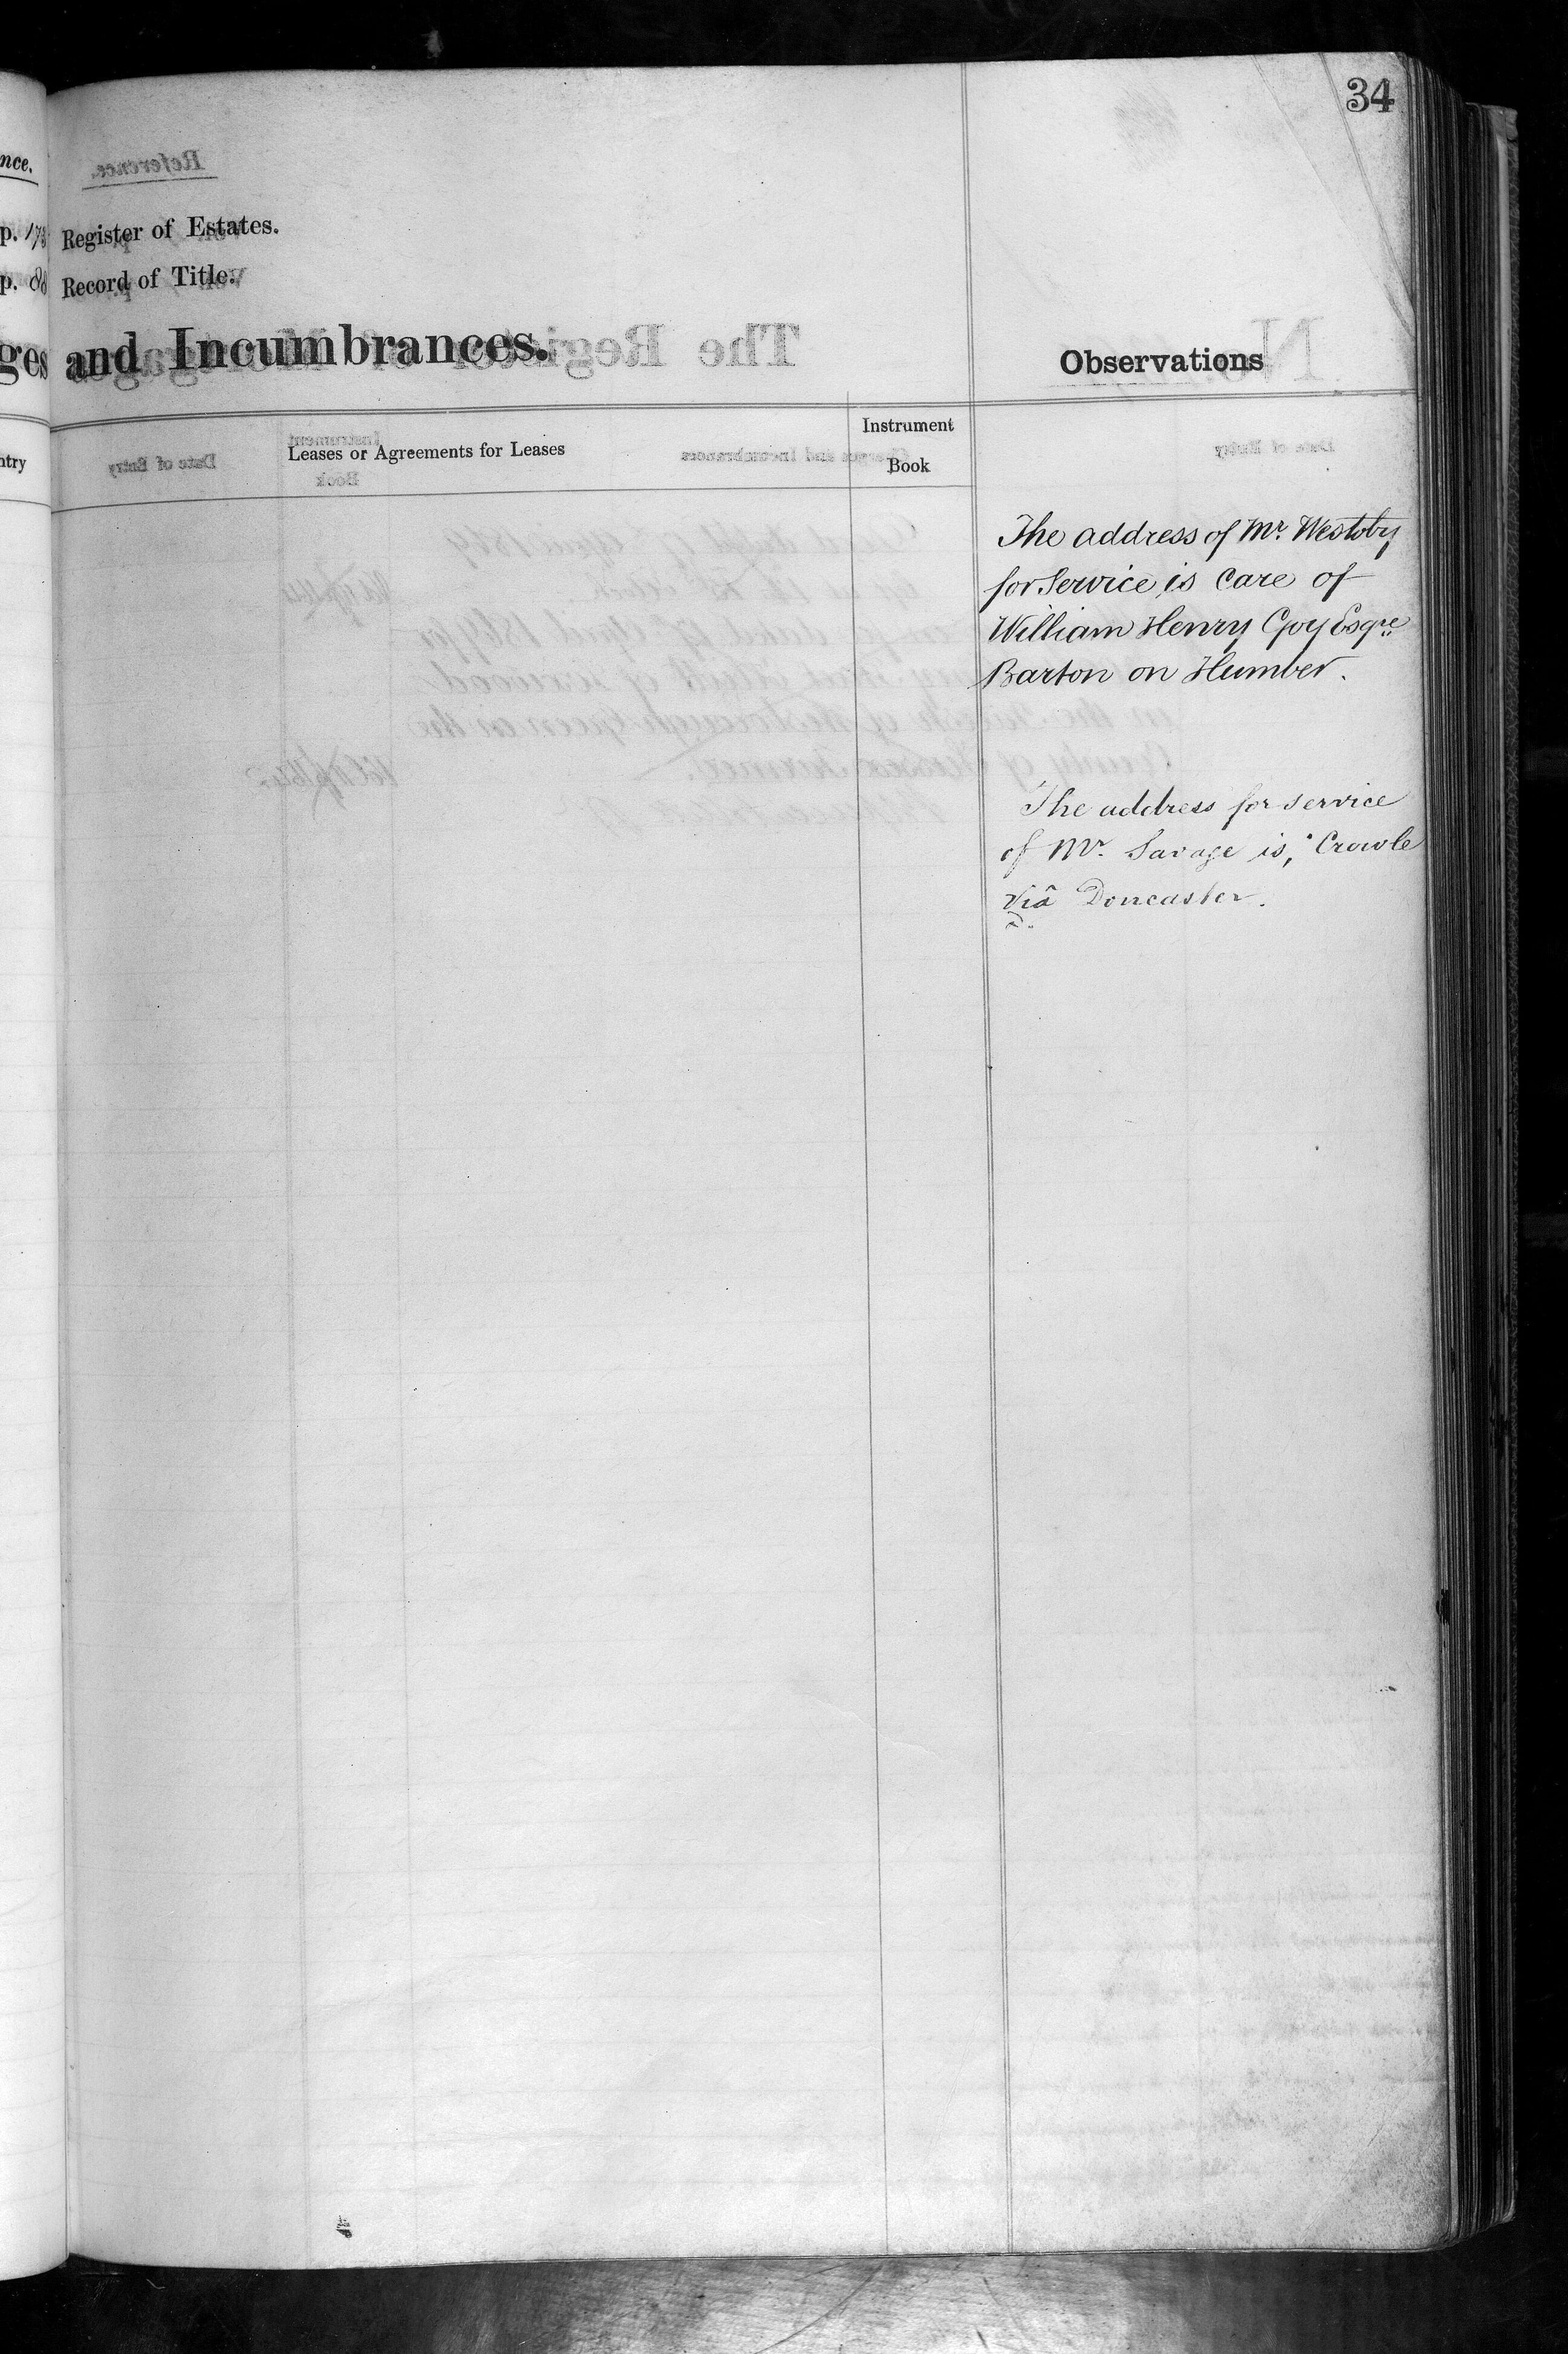 34
nce.
p. 178
Register of Estates.
p.
Record of Title.
ges and Incumbrances.
Observations
ntry
Leases or Agreements for Leases
Instrument
Book
The address of Mr. Westoby
for Service is Care of
William Henry Goy Esqre
Barton on Humber.
The address for service
of Mr. Savage is, Crowle
viâ Doncaster.